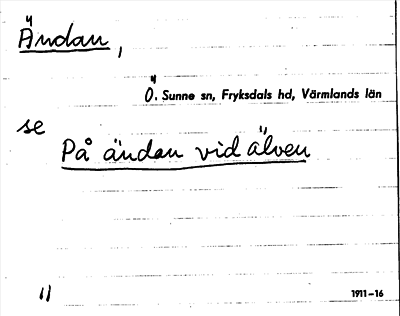 Ändan,
Ö. Sunne sn, Fryksdals hd, Värmlands län
se
På ändan vid älven
11 1911-16